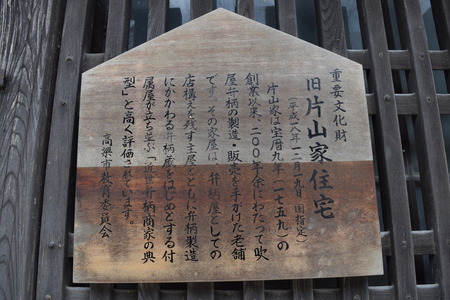 重要文化財
旧片山家住宅
(平成十八年十二月十九日 国指定)
片山家は宝暦九年(一七五九)の
創業以来、二〇〇年余にわたって吹
屋弁柄の製造・販売を手がけた老舗
です。その家屋は、弁柄屋としての
店構えを残す主屋とともに弁柄製造
にかかわる弁柄蔵をはじめとする付
属屋が立ち並ぶ「近世弁柄商家の典
型」と高く評価されています。
高梁市教育委員会